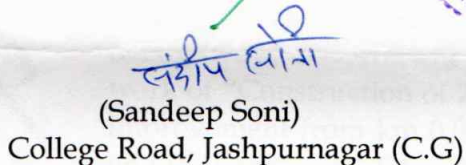 संदीप सोनी
(Sandeep Soni)
College Road, Jashpurnagar (C.G)